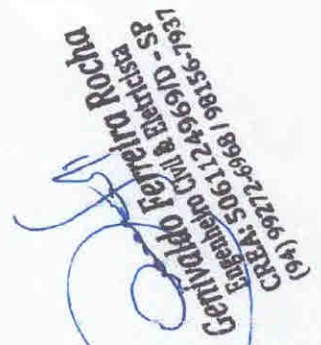 Genivaldo Ferreira Rocha
Engenheiro Civil & Eletricista
CREA: 5061124969/D - SP
(94) 99272-6968 / 98156-7937